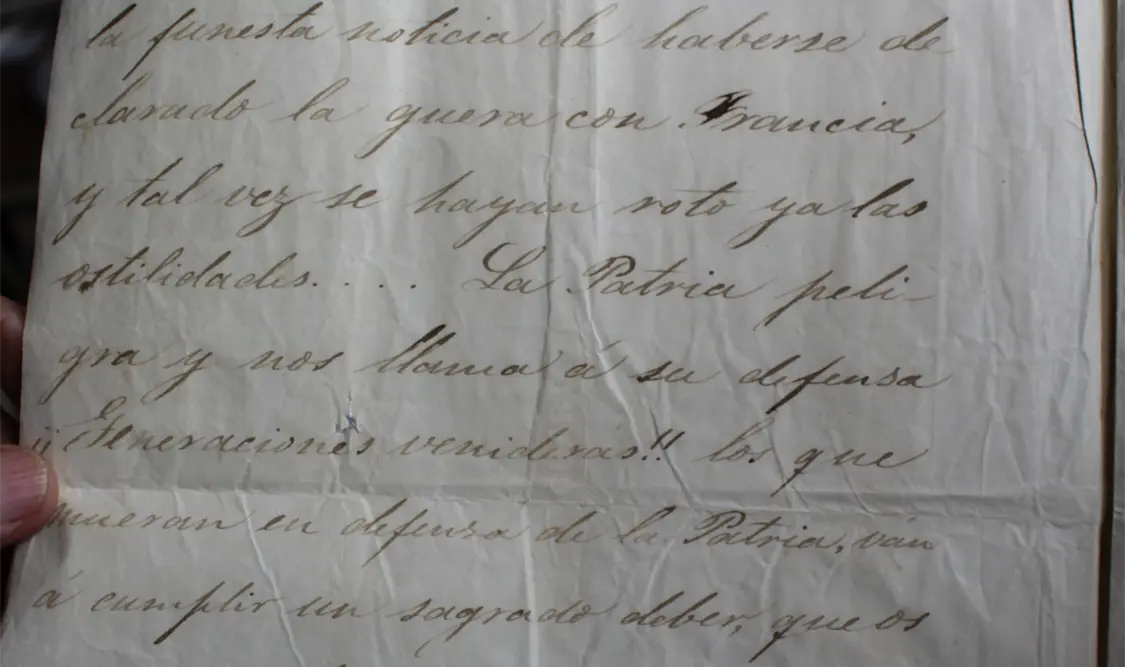 la funesta noticia de haberse de
clarado la guera con Francia,
y tal vez se hayan roto ya las
ostilidades. . . . La Patria peli-
gra y nos llama á su defensa
¡¡Generaciones venideras!! los que
mueran en defensa de la Patria, ván
á cumplir un sagrado deber, que os